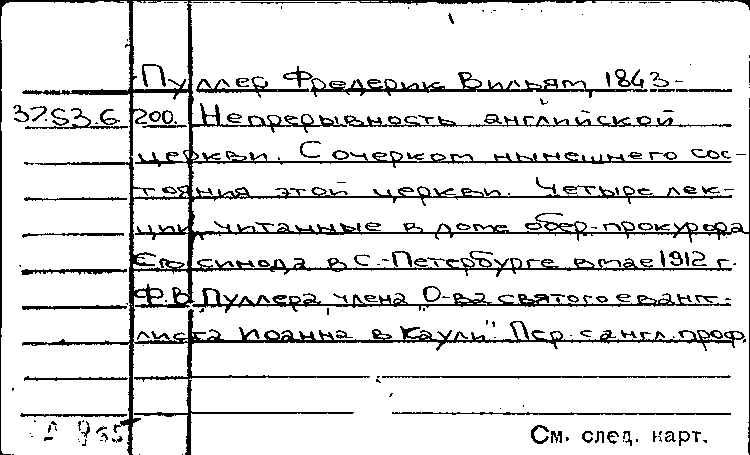 Пуллер Фредерик Вильям, 1843-
37.53.6. 200. Непрерывность английской
церкви. С очерком нынешнего сос-
тояния этой церкви. Четыре лек-
ции, читанные в доме обер-прокурора
Св. синода в С.-Петербурге в мае 1912 г.
Ф.В. Пуллера, члена "О-ва святого еванге-
листа Иоанна в Каули". Пер. с англ. проф.
См. след. карт.